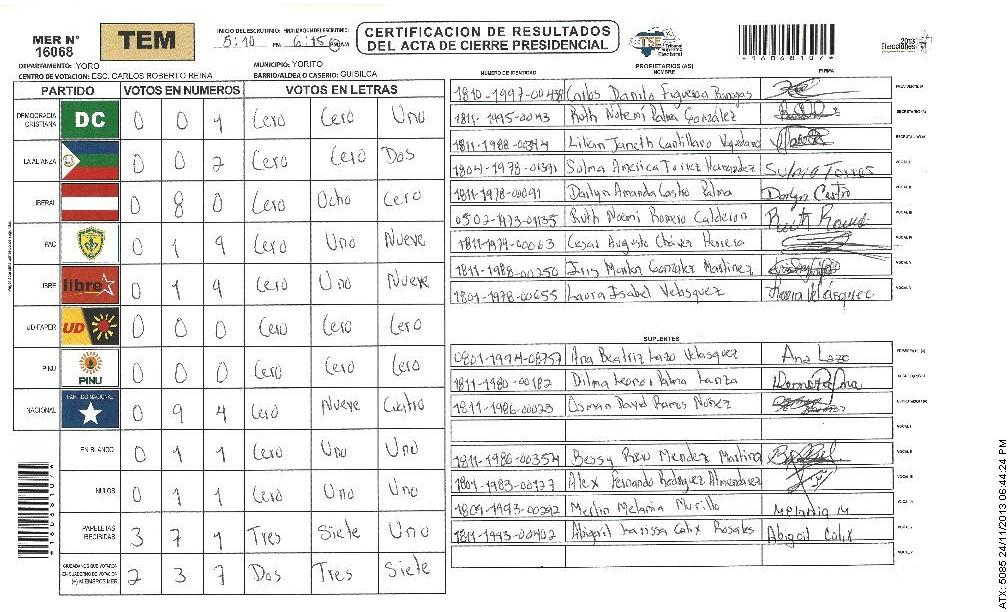 MER N° 16068
TEM
INICIO DEL ESCRUTINIO: FINALIZACION DEL ESCRUTINIO:
5:10 PM 6:15 PM AM
CERTIFICACION DE RESULTADOS
DEL ACTA DE CIERRE PRESIDENCIAL
TSE Tribunal Supremo Electoral
*16068107*
2013
Elecciones
DEPARTAMENTO: YORO MUNICIPIO: YORITO
CENTRO DE VOTACION: ESC. CARLOS ROBERTO REINA BARRIO/ALDEA O CASERIO: GUISILCA
PARTIDO VOTOS EN NUMEROS VOTOS EN LETRAS
DEMOCRACIA CRISTIANA DC 0 0 1 Cero Cero Uno
LA ALIANZA 0 0 2 Cero Cero Dos
LIBERAL 0 8 0 Cero Ocho Cero
PAC 0 1 9 Cero Uno Nueve
LIBRE libre 0 1 9 Cero Uno Nueve
UD-FAPER UD 0 0 0 Cero Cero Cero
PINU PINU 0 0 0 Cero Cero Cero
NACIONAL PARTIDO NACIONAL 0 9 4 Cero Nueve Cuatro
EN BLANCO 0 1 1 Cero Uno Uno
NULOS 0 1 1 Cero Uno Uno
PAPELETAS RECIBIDAS 3 7 1 Tres Siete Uno
CIUDADANOS QUE VOTARON EN CUADERNO DE VOTACION (+) MIEMBROS MER 2 3 7 Dos Tres Siete
*16068107*
PROPIETARIOS (AS)
NUMERO DE IDENTIDAD NOMBRE FIRMA
1810-1997-00438 Carlos Danilo Figueroa Banegas PRESIDENTE (A)
1811-1995-0043 Ruth Nohemi Palma González SECRETARIO (A)
1811-1988-00344 Lilian Janeth Cantillano
1804-1978-01391 Sulma America Torrez Hernandez Sulma Torres VOCAL I
1811-1978-00091 Darlyn Amanda Castro Palma Darlyn Castro VOCAL II
0502-1973-01135 Ruth Noemi Romero Calderon VOCAL III
1811-1979-00063 Cesar Augusto Chavez Herrera VOCAL IV
1811-1988-00250 Iris Marlen Gonzalez Martinez VOCAL V
1801-1978-00655 Laura Isabel Velasquez
SUPLENTES
0801-1994-08757 Ana Beatriz Lazo Velasquez Ana Lazo
1811-1980-00182 Dilma Leonor Palma Lanza
1811-1986-00023 Osman David Ramos Núñez
VOCAL I
1811-1986-00354 Bessy Mendez Martinez VOCAL II
1801-1983-00127 Alex Fernando Rodriguez Almendarez
1809-1993-00292 Merlin Melania Murillo Melania M
1811-1993-00402 Abigail Larissa Calix Rosales Abigail Calix
ATX: 5085 24/11/2013 06:44:24 PM